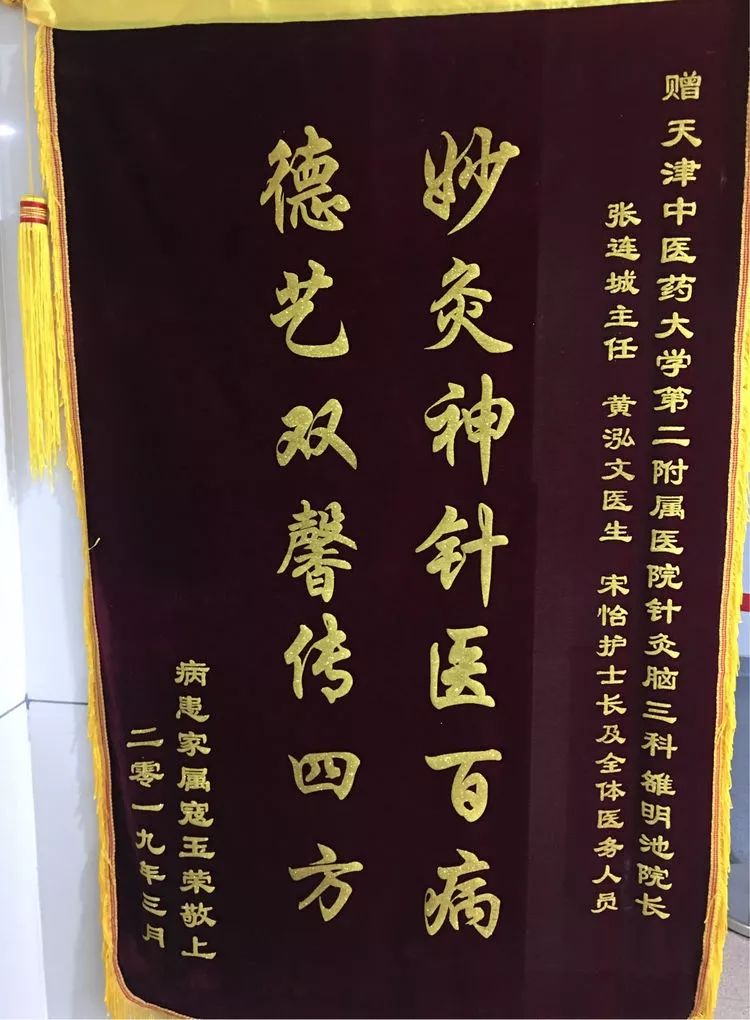 赠天津中医药大学第二附属医院针灸脑三科雒明池院长
张连城主任 黄泓文医生 宋怡护士长及全体医务人员
妙灸神针医百病
德艺双馨传四方
病患家属寇玉荣敬上
二零一九年三月